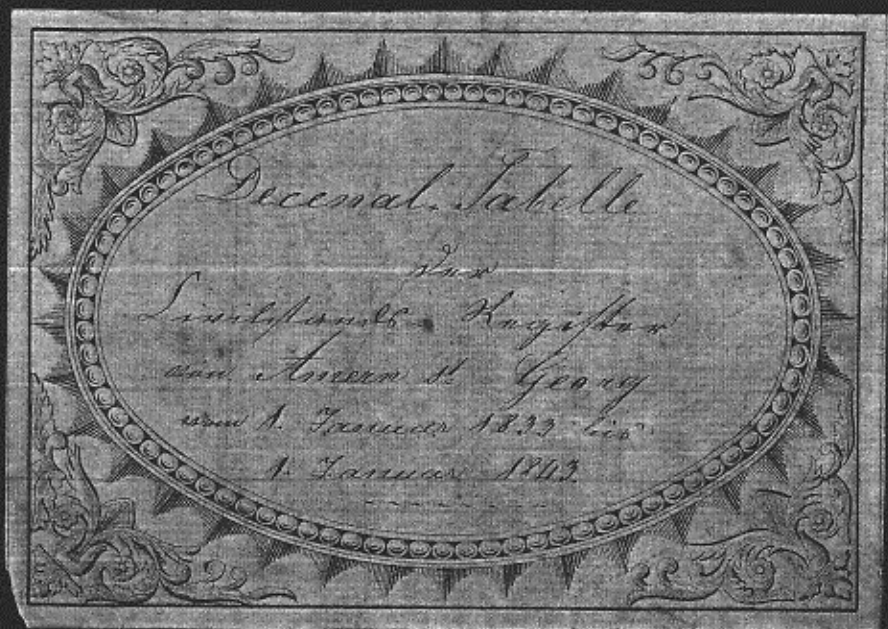 Decenal-Tabelle
der
Civilstands-Register
von Amern st Georg
vom 1. Januar 1833 bis
1. Januar 1843.